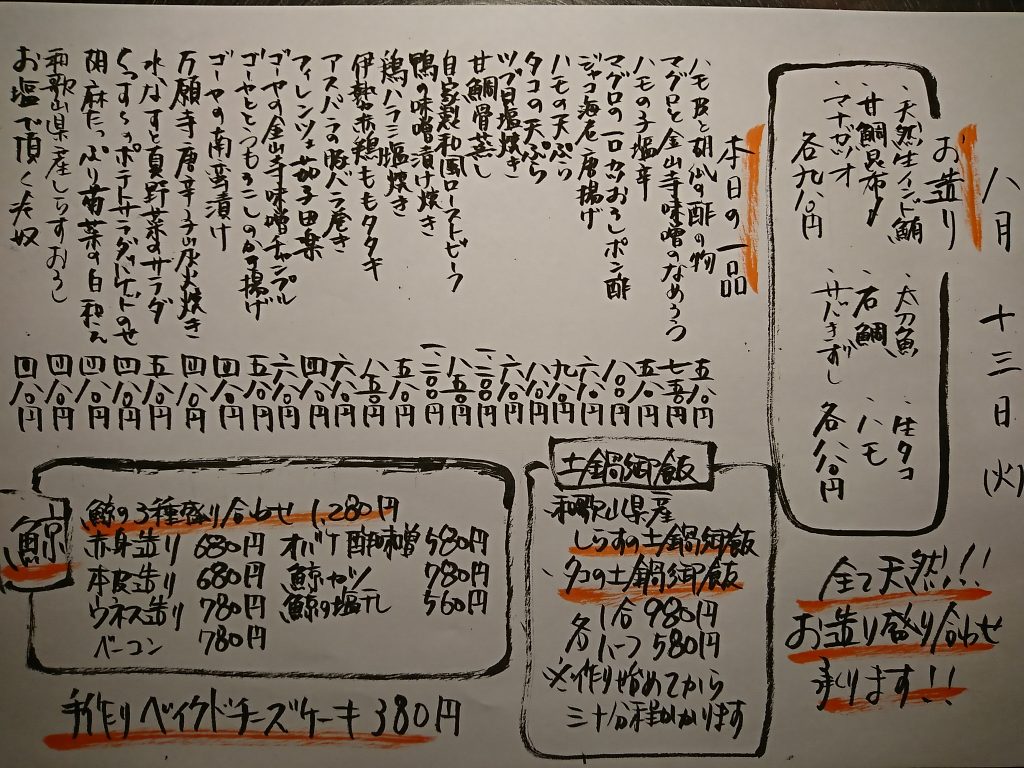 八月十三日(火)
お造り
・天然生インド鮪
・甘鯛昆布〆
・マナガツオ
各九八〇円
・太刀魚
・石鯛
・サバきずし
・生タコ
・ハモ
各八八〇円
全て天然!!
お造り盛り合わせ
承ります!!
本日の一品
ハモ皮と胡瓜の酢の物 五八〇円
マグロと金山寺味噌のなめろう 七五〇円
ハモの子塩辛 五八〇円
マグロの一口カツおろしポン酢 八〇〇円
ジャコ海老唐揚げ 六八〇円
ハモの天ぷら 九八〇円
タコの天ぷら 八八〇円
ツブ貝塩焼き 六八〇円
甘鯛骨蒸し
自家製和風ローストビーフ
鴨の味噌漬け焼き
鶏ハラミ塩焼き 五八〇円
伊勢赤鶏ももタタキ 八五〇円
アスパラの豚バラ巻き 六八〇円
フィレンツェ茄子田楽 四八〇円
ゴーヤの金山寺味噌チャンプル 六八〇円
ゴーヤととうもろこしのかき揚げ 五八〇円
ゴーヤの南蛮漬け 四八〇円
万願寺唐辛子炭火焼き 四八〇円
水なすと真野菜のサラダ 五八〇円
くろずしのポテトサラダ 四八〇円
胡麻たっぷり菊菜の白和え 四八〇円
和歌山県産しらすおろし 四八〇円
お塩で頂く冷奴 四八〇円
土鍋御飯
和歌山県産
しらすの土鍋御飯
・タコの土鍋御飯
各 1合 980円
ハーフ 580円
※作り始めてから
三十分程かかります
鯨
鯨の3種盛り合わせ 1,280円
赤身造り 680円 オバケ酢味噌 580円
本皮造り 680円 鯨カツ 780円
ウネス造り 780円 鯨の塩干 560円
ベーコン 780円
手作りベイクドチーズケーキ 380円